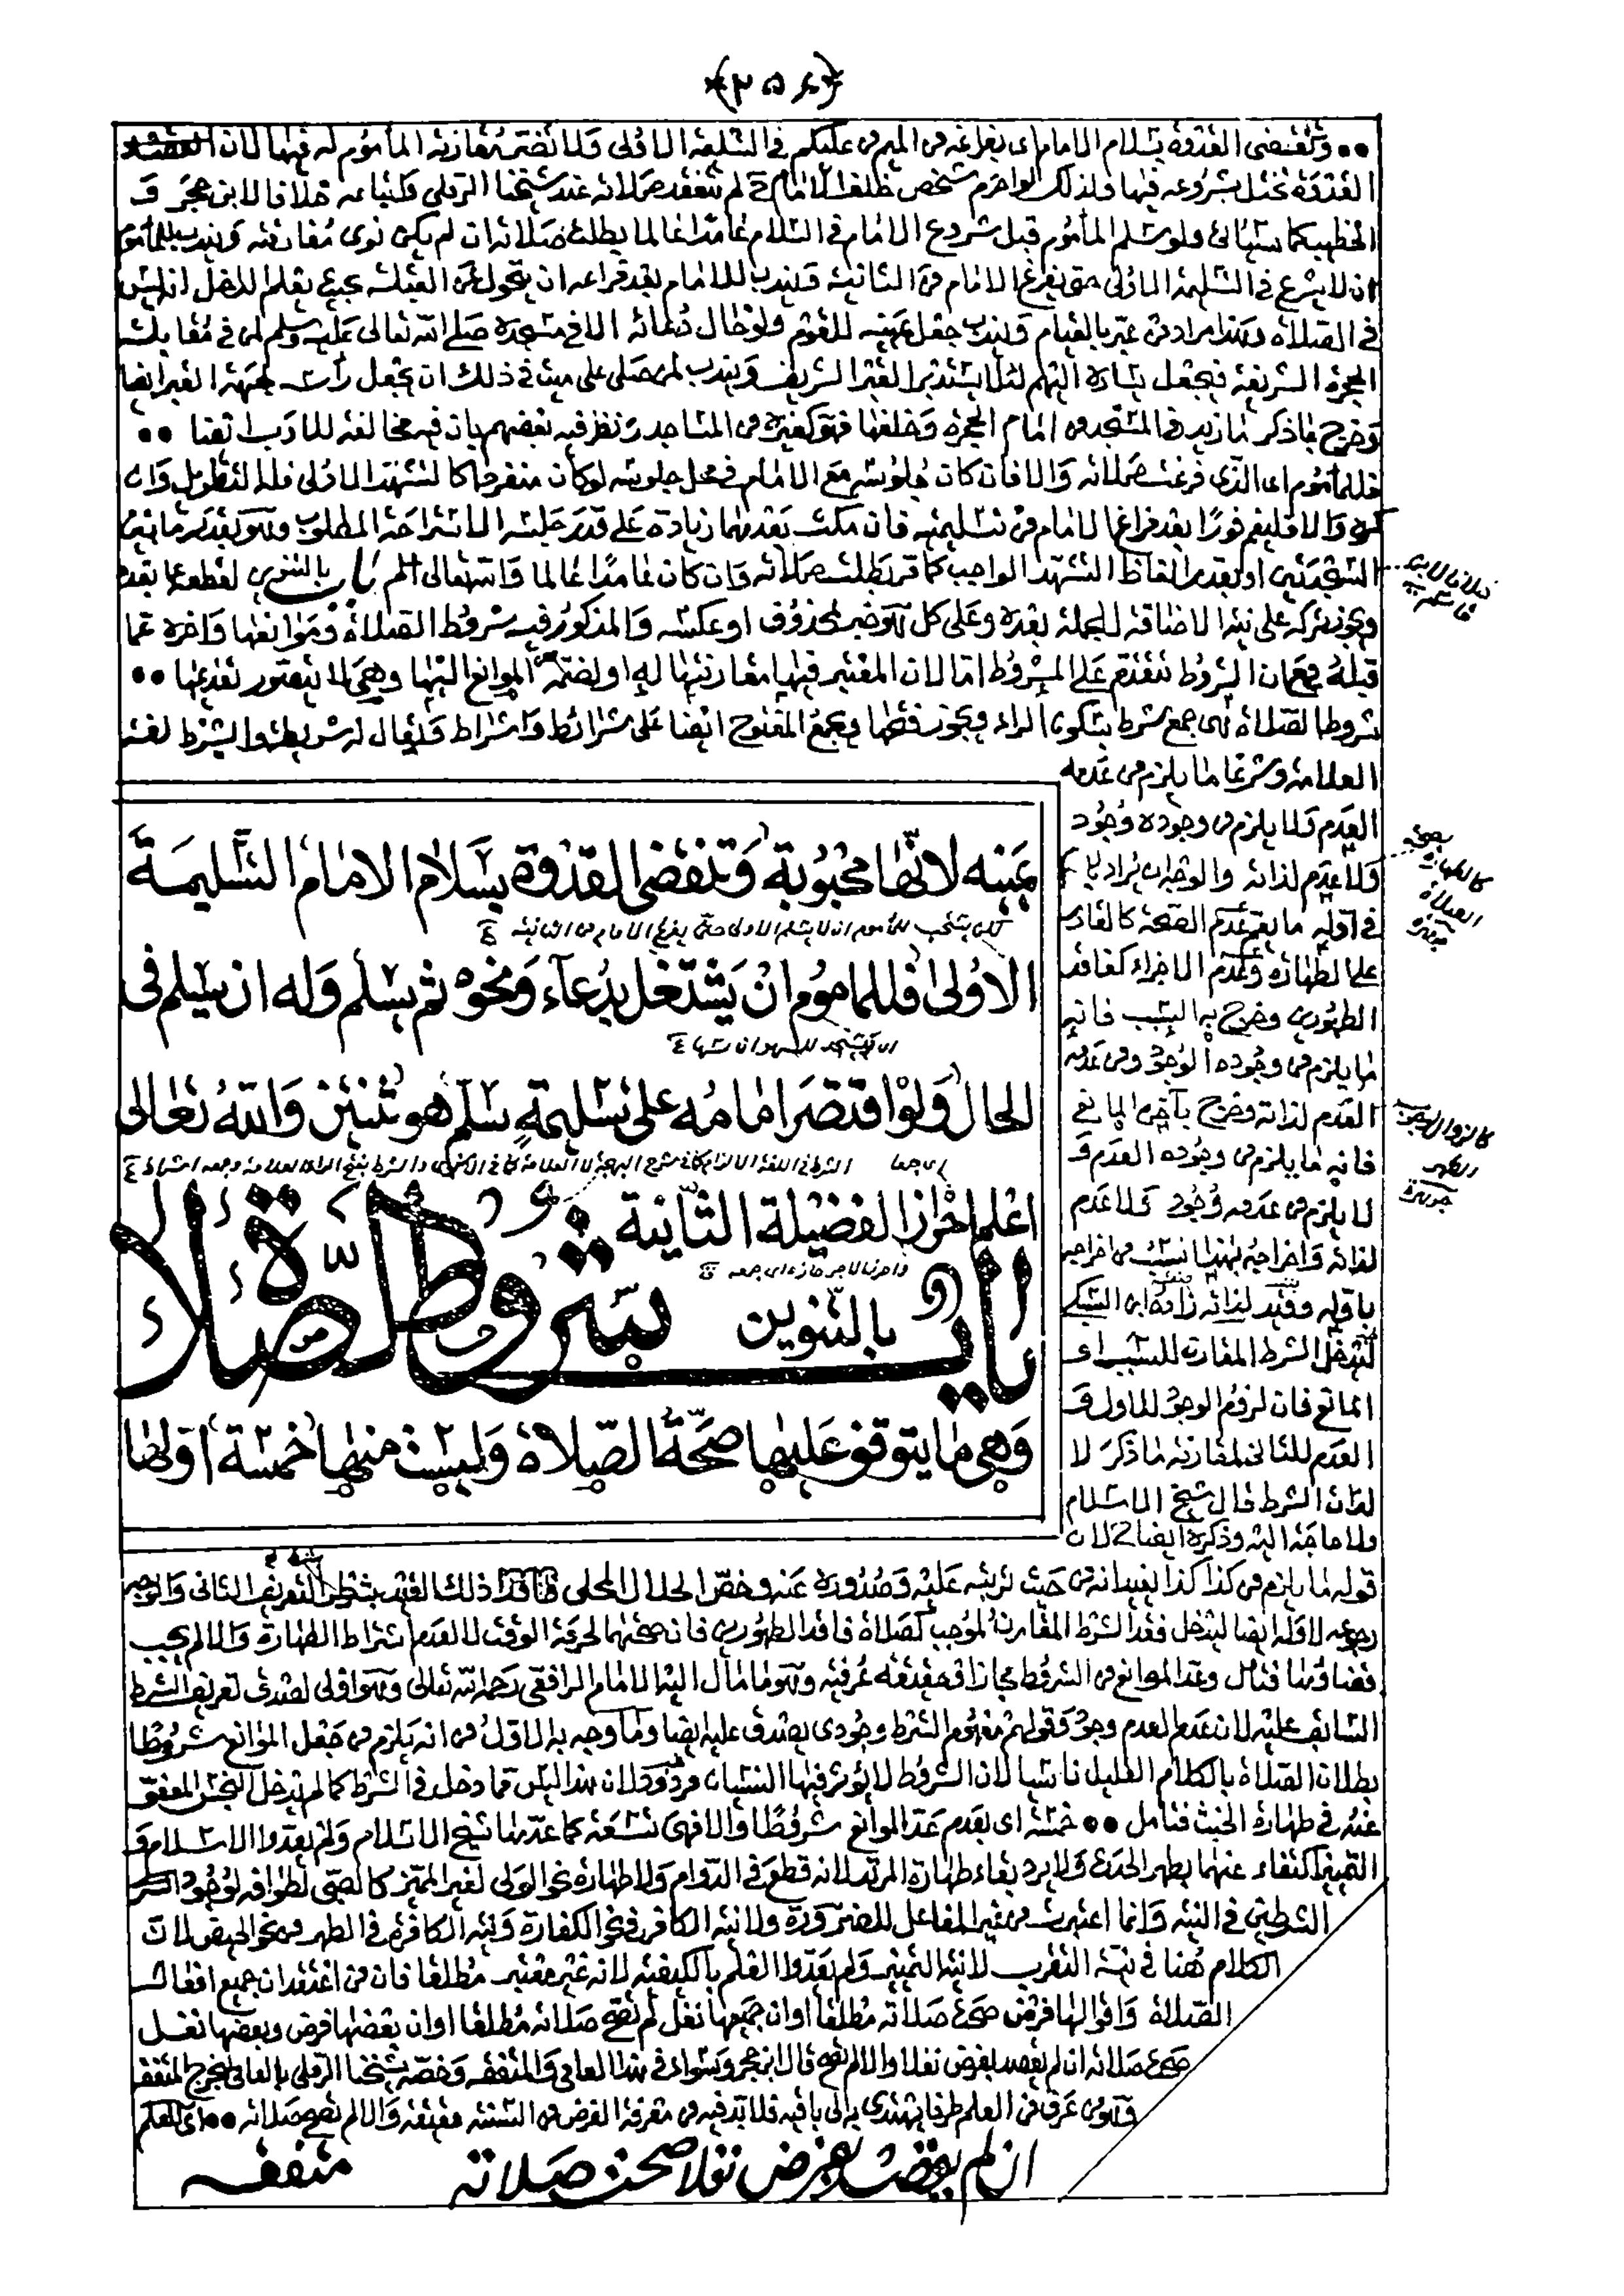 ﴿٢٥٤﴾
وتنقضى القدوة بسلام الامام اى بفراغه من الميم من عليكم فى التسليمة الاولى ولا تضر مقارنة المأموم له فيها لان
القدوة تختل بشروعه فيها ولذلك لو احرم شخص خلف الامام ح لم تنعقد صلاته عند شيخنا الرملى واتباعه خلافا لابن حجر و
الخطيب كما سيأتى ولو سلم المأموم قبل شروع الامام فى السلام عامدا عالما بطلت صلاته ان لم يكن نوى مفارقته ويندب للمأموم
ان لا يشرع فى التسليمة الاولى حتى يفرغ الامام من الثانية ويندب للامام بعد فراغه ان يتحول عن القبلة بحيث يعلم الداخل انه ليس
فى الصلاة وهذا مراد من عبر بالقيام ويندب جعل يمينه للقوم ولو حال دعائه الا فى مسجده صلى الله تعالى عليه وسلم لمن فى مقابلة
الحجرة الشريفة فيجعل يساره اليهم لئلا يستدبر القبر الشريف ويندب لمن صلى على ميت فى ذلك ان يجعل رأسه لجهة القبر ايضا
وخرج بما ذكر ما زيد فى المسجد من امام الحجرة وخلفها فهو كغيره من المساجد ونظر فيه بعضهم بان فيه مخالفة للادب ايضا
فللمأموم اى الذى فرغت صلاته والا فان كان جلوسه مع الامام فى محل جلوسه لو كان منفردا كالتشهد الاول فله التطويل وان
كره والا فليقم فورا بعد فراغ الامام من تسليمتيه فان مكث بعدهما زيادة على قدر جلسة الاستراحة المطلوب وهو بقدر ما بين
السجدتين او بقدر الفاظ التشهد الواجب كما مر بطلت صلاته وان كان عامدا عالما والله تعالى اعلم باب بالتنوين لقطعه عما بعده
ويجوز تركه على نية الاضافة للجملة بعده وعلى كل هو خبر لمحذوف او عكسه والمذكور فيه شروط الصلاة وموانعها واخره عما
قبله مع ان الشروط تتقدم على المشروط اما لان المعتبر فيها مقارنتها له او لضم الموانع اليها وهى لا يتصور تقدمها
شروط الصلاة هى جمع شرط بسكون الراء ويجوز فتحها ويجمع المفتوح ايضا على شرائط واشراط ويقال له شريطة والشرط لغة
العلامة وشرعا ما يلزم من عدمه
العدم ولا يلزم من وجوده وجود
ولا عدم لذاته والوجه ان يراد بما
فى اوله ما يعم عدم الصحة كالقادر
على الطهارة وعدم الاجزاء كفاقد
الطهورين وخرج به السبب فانه
ما يلزم من وجوده الوجود ومن عدمه
العدم لذاته وخرج بآخره المانع
فانه ما يلزم من وجوده العدم و
لا يلزم من عدمه وجود ولا عدم
لذاته واخراجه بهذا انسب من اخراجه
باوله وقيد لذاته زاده ابن السبكى
ليدخل الشرط المقارن للسبب او
المانع فان لزوم الوجود للاول و
العدم للثانى لمقارنة ما ذكر لا
لذات الشرط قال شيخ الاسلام
ولا حاجة اليه وذكره ايضاح لان
خلافا لابن
قاسم
كالطهارة
الصلاة
يمينه لانها محبوبة وتنقضى القدوة بسلام الامام التسليمة
لكن يستحب للمأموم ان لا يسلم الاولى حتى يفرغ الامام من الثانية
الاولى فللمأموم ان يشتغل بدعاء ونحوه ثم يسلم وله ان يسلم فى
الحال ولو اقتصر امامه على تسليمة سلم هو ثنتين والله تعالى
اعلم احراز الفضيلة الثانية
باب بالتنوين شروط الصلاة
وهى ما يتوقف عليها صحة الصلاة وليست منها خمسة اولها
قوله ما يلزم من كذا كذا يفيد انه من حيث ترتبه عليه وصدوره عنه وخص الجلال المحلى ذلك القيد بشطر التعريف الثانى والوجه
رجوعه للاول ايضا ليدخل فقد الشرط المقارن لموجب كصلاة فاقد الطهورين فان صحتها لحرمة الوقت لا لعدم اشتراط الطهارة والا لم يجب
قضاؤها فتأمل وعد الموانع من الشروط مجاز او حقيقة عرفية وهو ما مال اليه الامام الرافعى رحمه الله تعالى وهو اولى لصدق تعريف الشرط
السابق عليه لان عدم العدم وجود وقولهم مفهوم الشرط وجودى يصدق عليه ايضا وما وجه به الاول من انه يلزم من جعل الموانع شروطا
بطلان الصلاة بالكلام القليل ناسيا لان الشروط لا يؤثر فيها النسيان مردود لان هذا ليس مما دخل فى الشرط كما لم يدخل النجس المعفو
عنه فى طهارة الخبث فتأمل خمسة اى بعدم عد الموانع شروطا والا فهى تسعة كما عدها شيخ الاسلام ولم يعدوا الاسلام و
التمييز اكتفاء عنهما بطهر الحدث ولا يرد بقاء طهارة المرتد لانه قطع فى الدوام ولا طهارة نحو الولى لغير المميز كالصبى لطوافه لوجود
الشرطين فى النية وانما اعتبرت من غير الفاعل للضرورة ولا نية الكافر فى نحو الكفارة ونية الكافرة فى الطهر من نحو الحيض لان
الكلام هنا فى نية التقرب لا نية التمييز ولم يعدوا العلم بالكيفية لانه غير معتبر مطلقا فان من اعتقد ان جميع افعال
الصلاة واقوالها فرض صحت صلاته مطلقا او ان جميعها نفل لم تصح صلاته مطلقا او ان بعضها فرض وبعضها نفل
صحت صلاته ان لم يقصد بفرض نفلا والا لم تصح قال ابن حجر وسواء فى هذا العامى والمتفقه وخصه شيخنا الرملى بالعامى ليخرج المتفقه
وهو من عرف من العلم طرفا يهتدى به الى باقيه فلا بد فيه من معرفة الفرض من السنة حقيقة والا لم تصح صلاته اى العلم
ان لم يقصد بفرض نفلا صحت صلاته متفقه